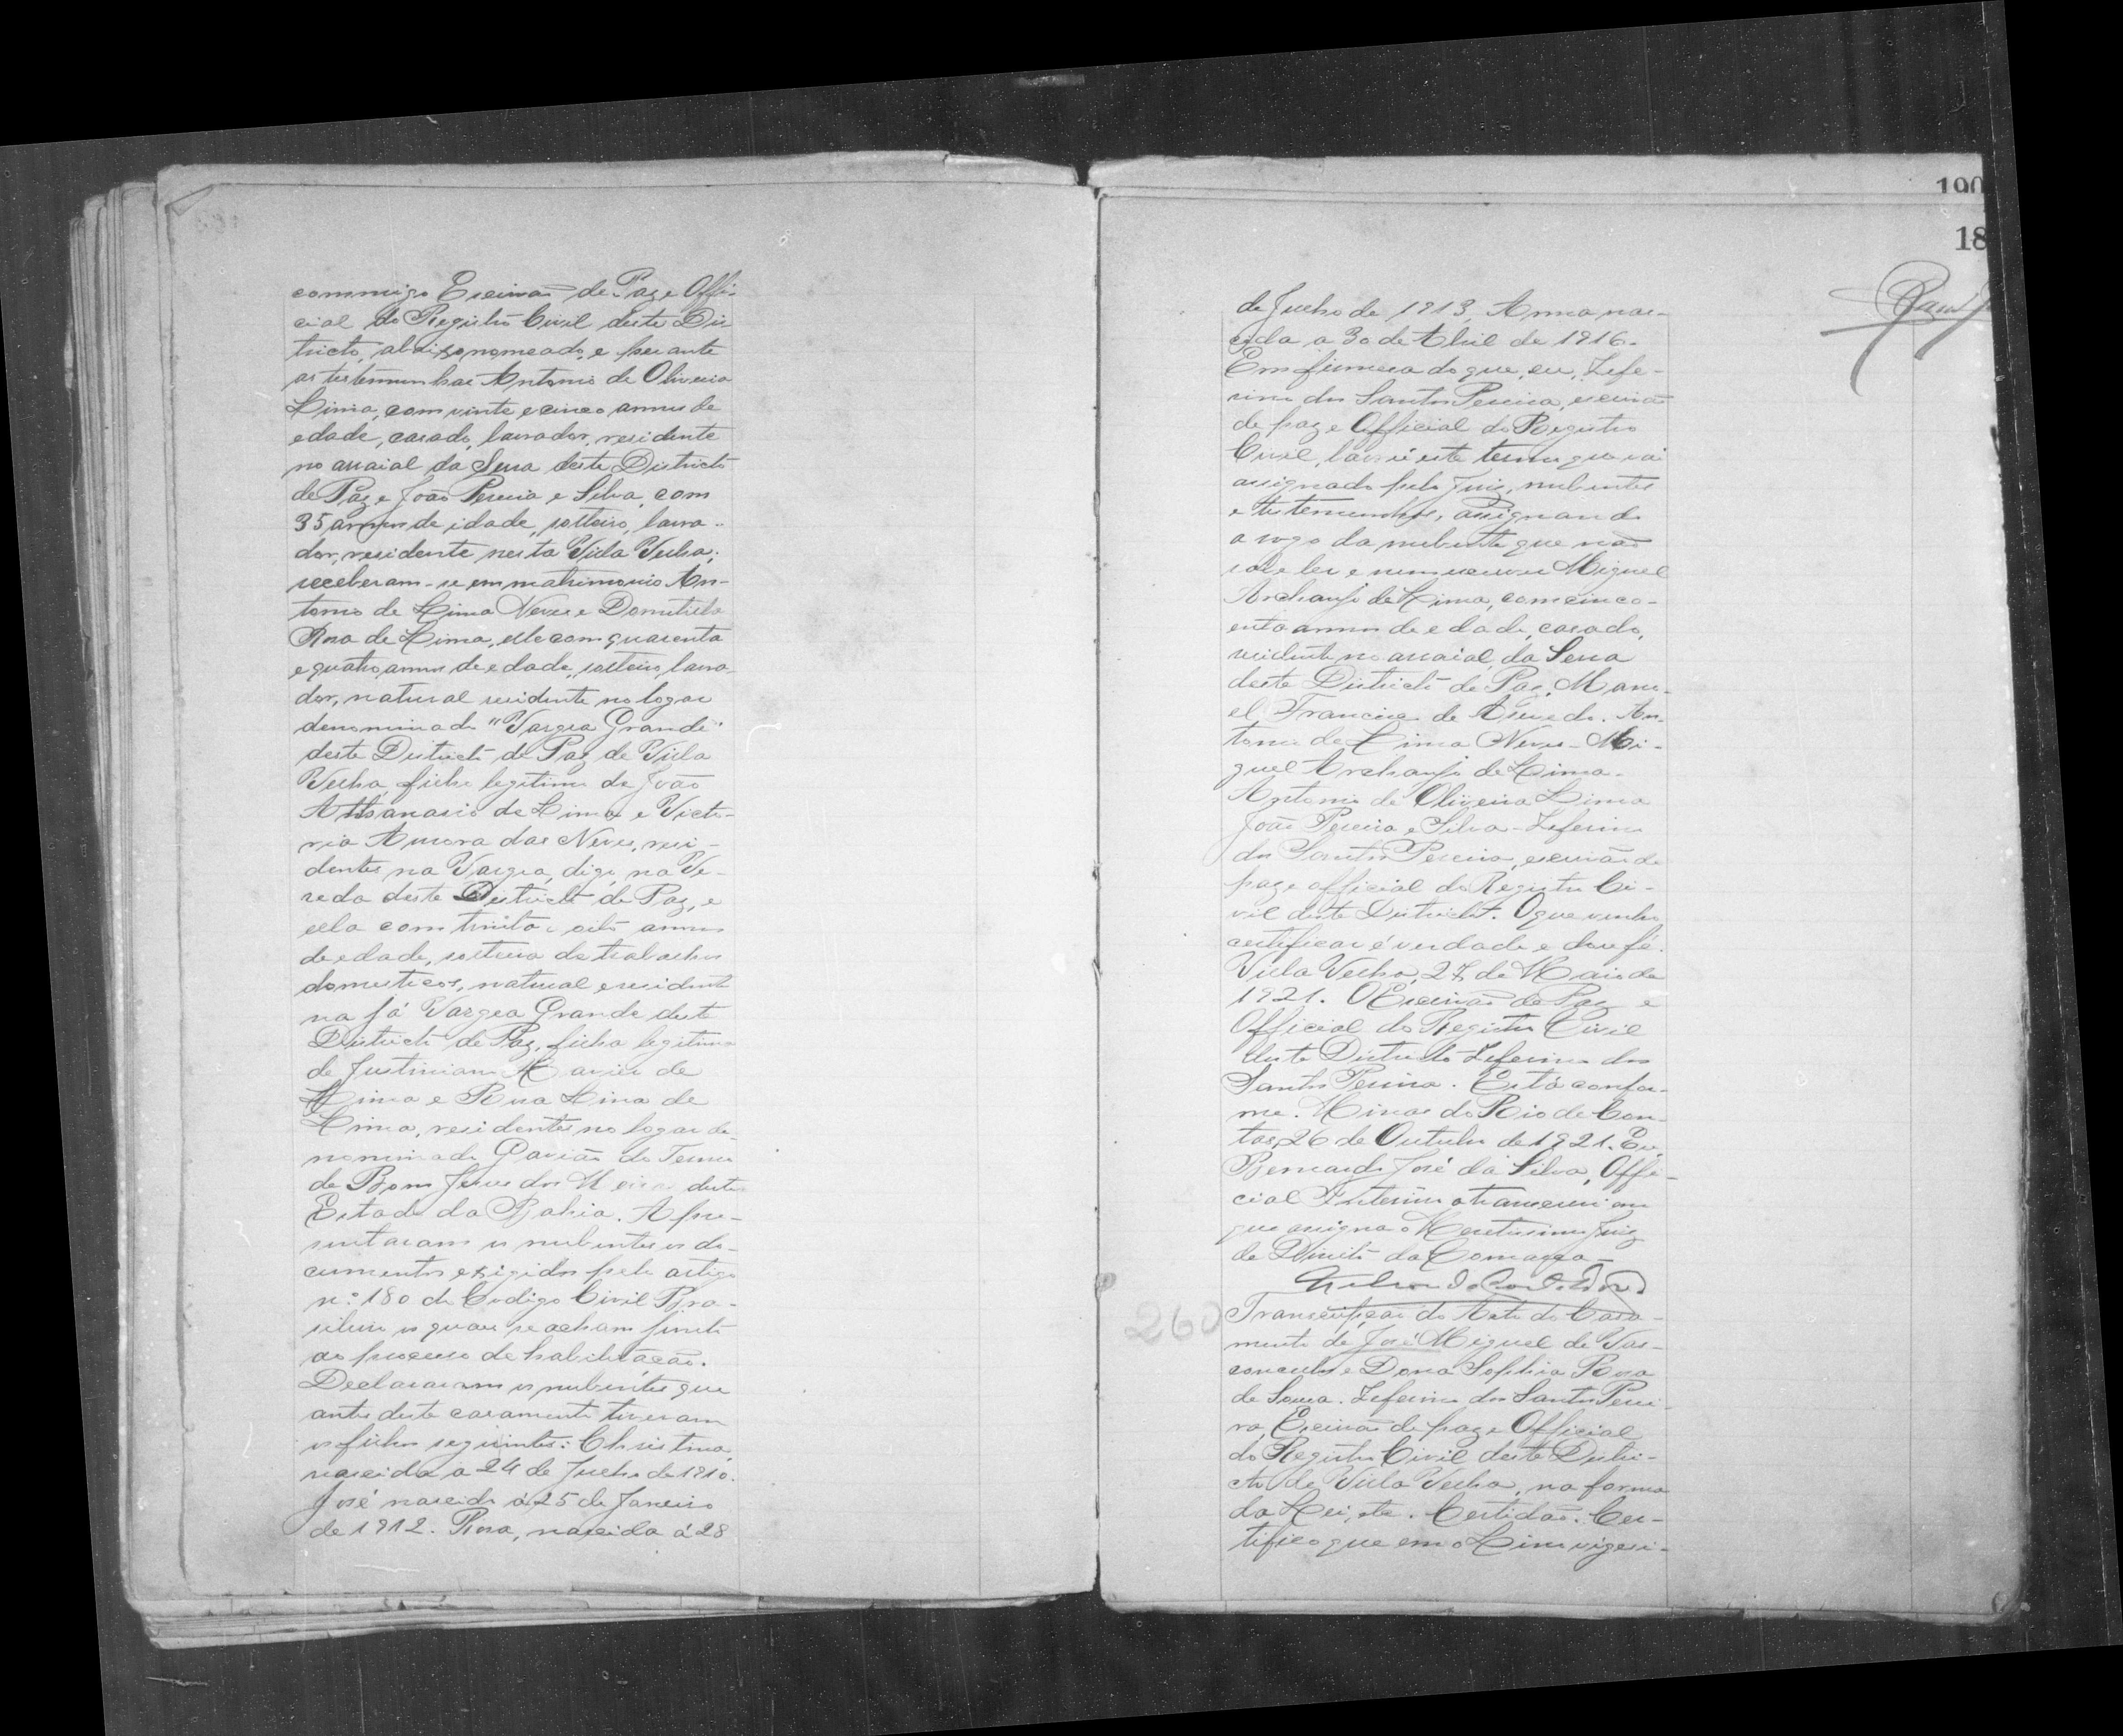 commigo Escrivão de Paz e Offi-
cial do Registro Civil deste Dis
tricto, abaixo nomeado, e perante
as testemunhas Antonio de Oliveira
Lima, com vinte e cinco annos de
edade, casado, lavrador, residente
no arraial da Serra deste Districto
de Paz e João Pereira e Silva, com
35 annos de idade, solteiro, lavra-
dor, residente nesta Villa Velha;
receberam-se em matrimonio An-
tonio de Lima Neves e Domitilla
Rosa de Lima, elle com quarenta
e quatro annos de edade, solteiro, lavra-
dor, natural residente no logar
denominado "Vargea Grande"
deste Districto de Paz de Villa
Velha, filho legitimo de João
Athanasio de Lima e Victo-
ria Aurora das Neves, resi-
dentes na Vargea, digo, na Ve-
reda deste Districto de Paz, e
ella com trinta e oito annos
de edade, solteira de trabalhos
domesticos, natural e residente
na já Vargea Grande deste
Districto de Paz, filha legitima
de Justiniano Xavier de
Lima e Rosa Lina de
Lima, residentes no logar de-
nominado Gavião do Termo
de Bom Jesus dos Meiras deste
Estado da Bahia. Apre-
sentaram os nubentes os do-
cumentos exigidos pelo artigo
n.º 180 do Codigo Civil Bra-
sileiro os quaes se acham juntos
ao processo de habilitação.
Declararam os nubentes que
antes deste casamento tiveram
os filhos seguintes: Christina,
nascida a 24 de Julho de 1910.
José nascido á 25 de Janeiro
de 1912. Rosa, nascida á 28
190
18
de Junho de 1913, Anna nas-
cida a 30 de Abril de 1916.
Em firmeza do que, eu, Zefe-
rino dos Santos Pereira, escrivão
de paz e Official do Registro
Civil, lavrei este termo que vai
assignado pelo Juiz, nubentes
e testemunhas, assignando
a rogo da nubente que não
sabe ler e nem escrever Miguel
Archanjo de Lima, com cinco-
enta annos de edade, casado,
residente no arraial da Serra
deste Districto de Paz. Mano-
el Francisco de Azevedo. An-
tonio de Lima Neves - Mi-
guel Archanjo de Lima.
Antonio de Oliveira Lima
João Pereira e Silva - Zeferino
dos Santos Pereira, escrivão de
paz e official do Registro Ci-
vil deste Districto. O que venho
certificar é verdade e dou fé.
Villa Velha, 27 de Maio de
1921. O Escrivão de Paz e
Official do Registro Civil
deste Districto Zeferino dos
Santos Pereira. Está confor-
me. Minas do Rio de Con-
tas, 26 de Outubro de 1921. Eu,
Bernardo José da Silva, Offi-
cial Interino o transcrevi em
que assigna o Meritissimo Juiz
de Direito da Comarca -
260
Transcripção do Acto do Casa-
mento de José Miguel de Vas-
concellos e Dona Sophia Rosa
de Souza. Zeferino dos Santos Perei
ra, Escrivão de paz e Official
do Registro Civil deste Distri-
cto de Villa Velha, na forma
da Lei, etc. Certidão. Cer-
tifico que em o Livro vigesi-